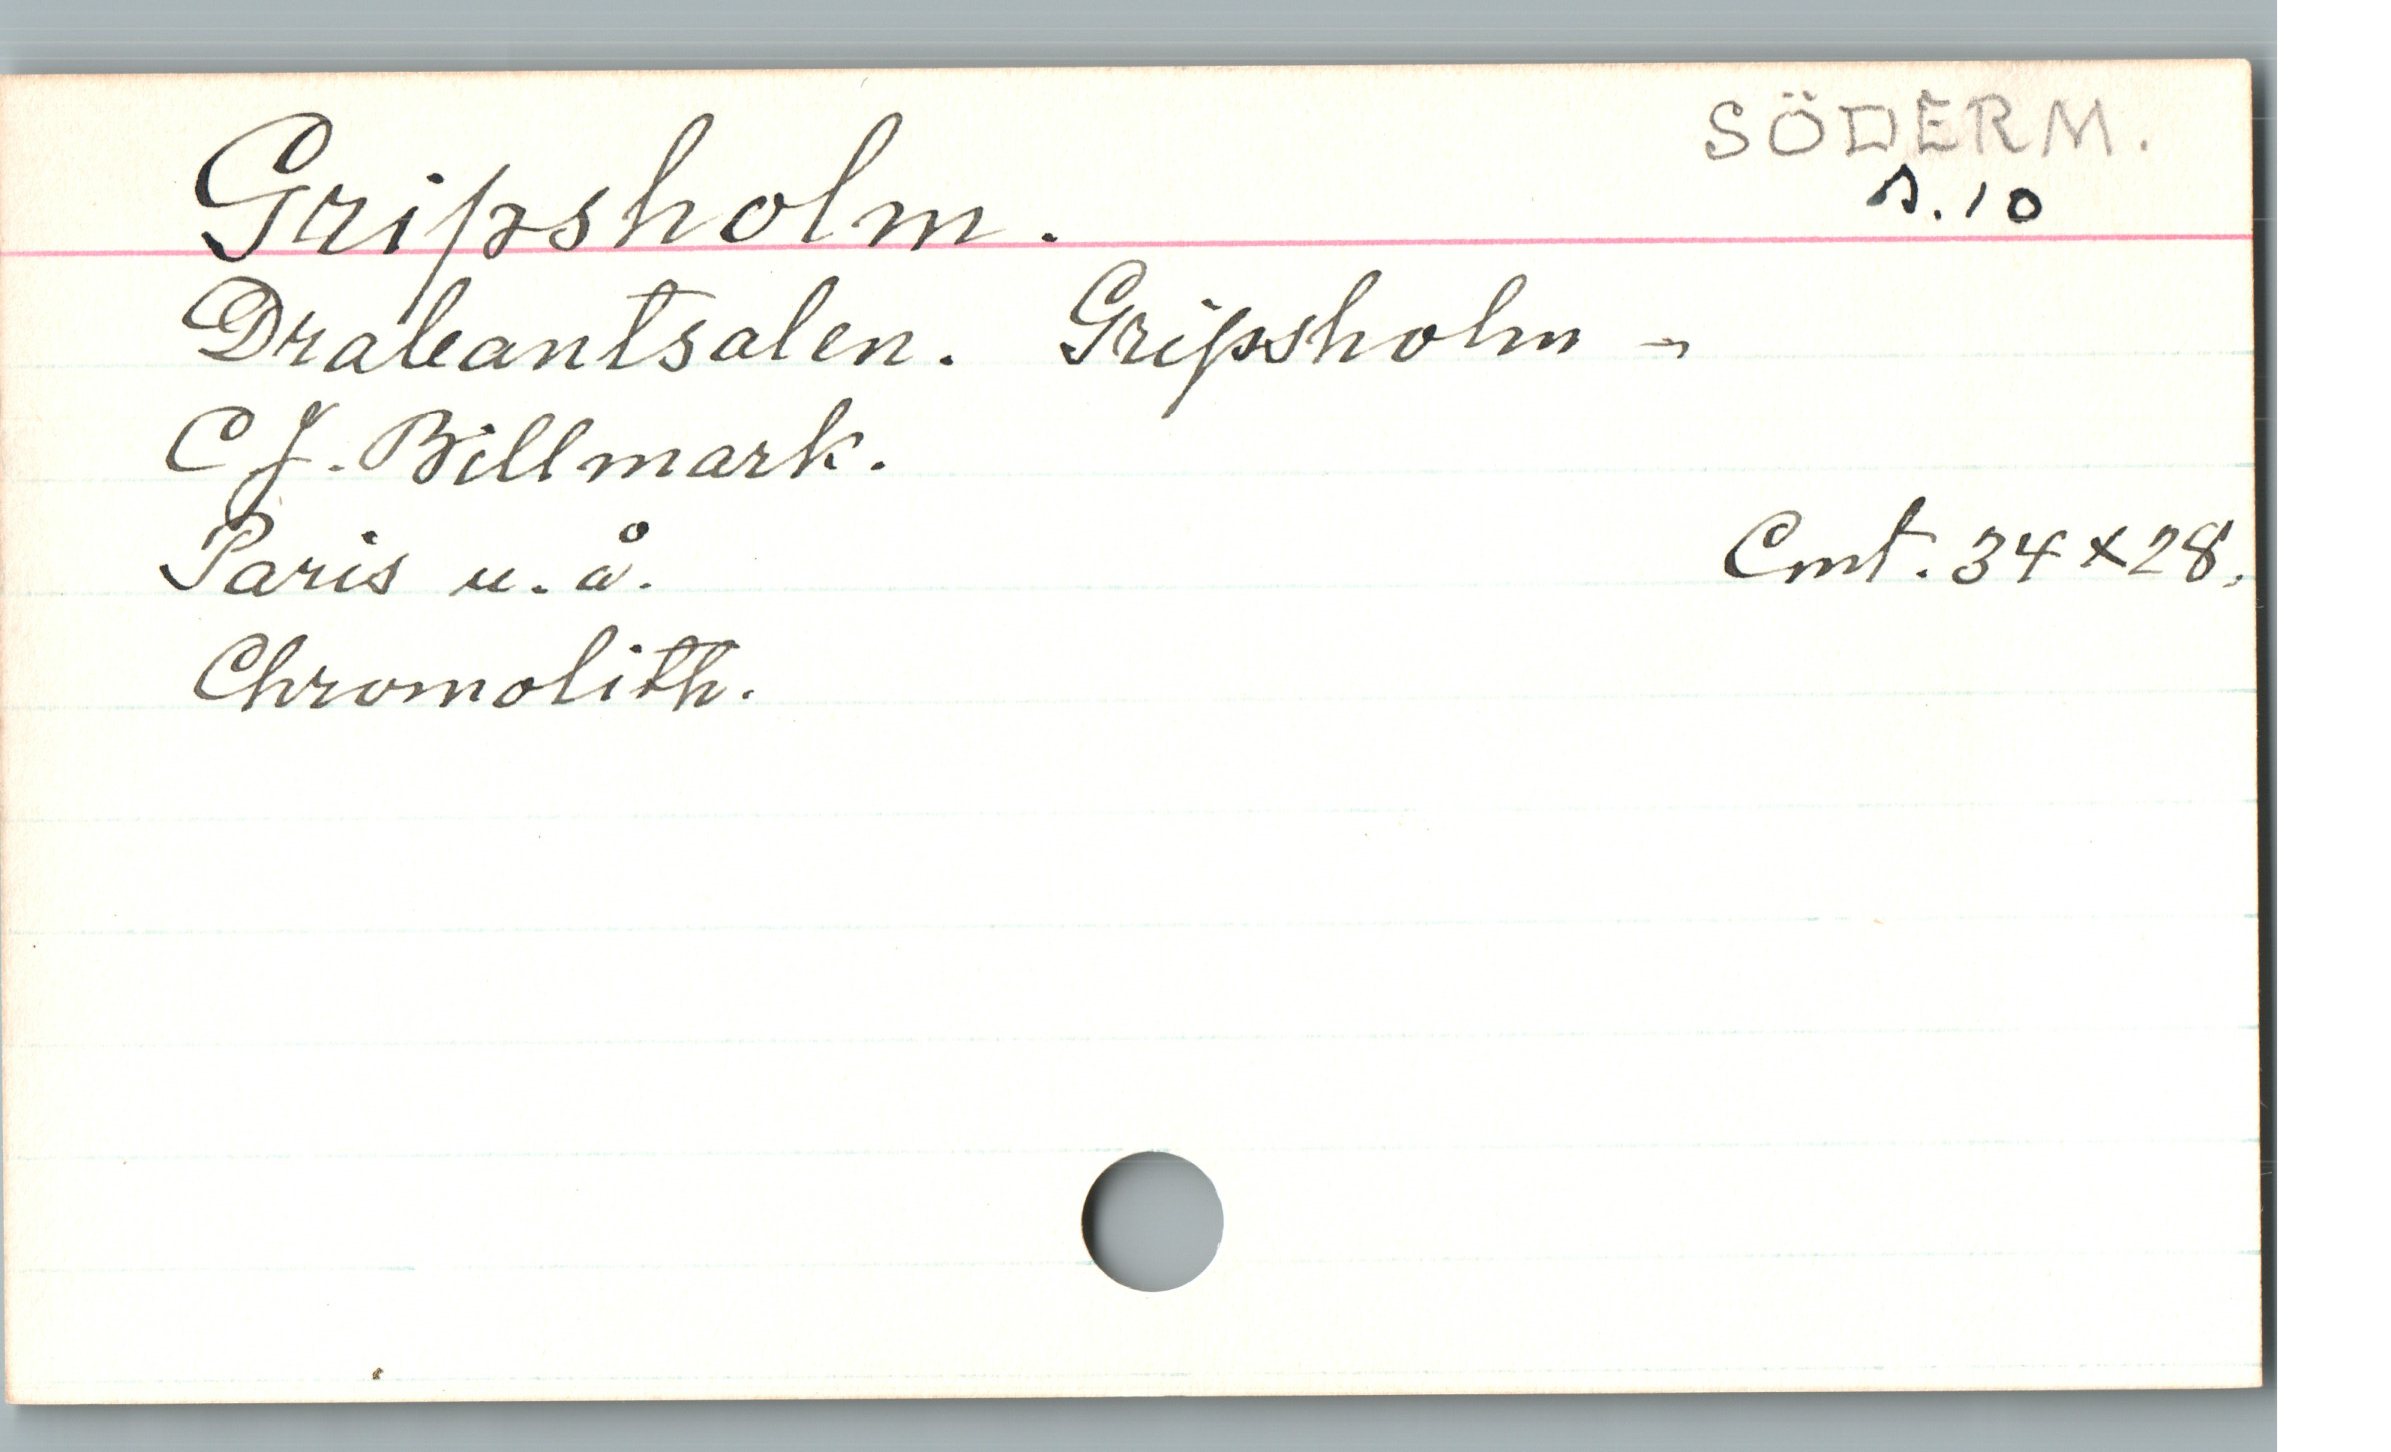 SÖDERM.
s. 10
Gripsholm.
Drabantsalen. Gripsholm -
C J. Billmark.
Paris u. å. Cmt. 34 x 28.
Chromolith.